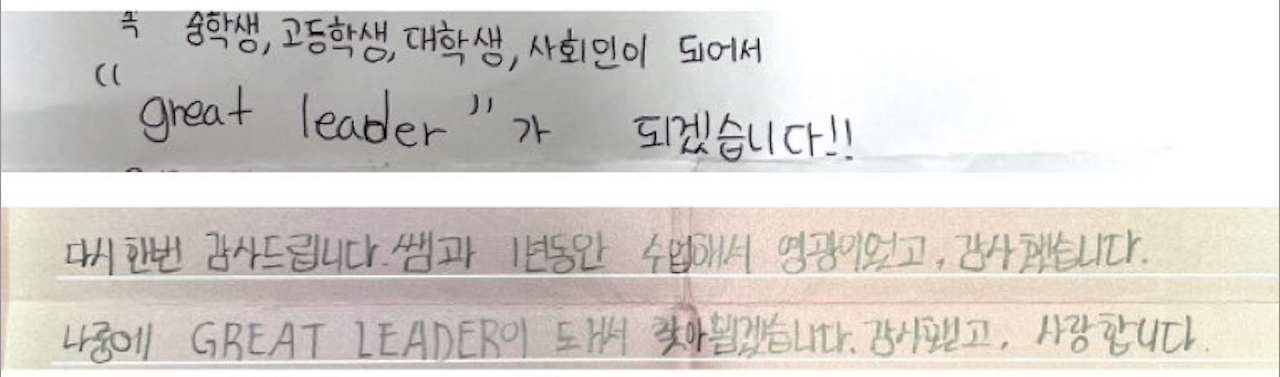 꼭 중학생, 고등학생, 대학생, 사회인이 되어서
"great leader"가 되겠습니다!!
다시 한번 감사드립니다. 쌤과 1년동안 수업해서 영광이었고, 감사했습니다.
나중에 GREAT LEADER이 되서 찾아뵐겠습니다. 감사했고, 사랑합니다.